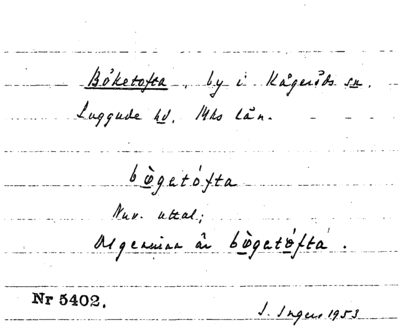 Böketofta, by i Kågeröds sn.
Luggude hd. Mhs län.
bø̀getófta
Nuv. uttal;
är bø̀getøfta.
Nr 5402.
I. Ingers 1953